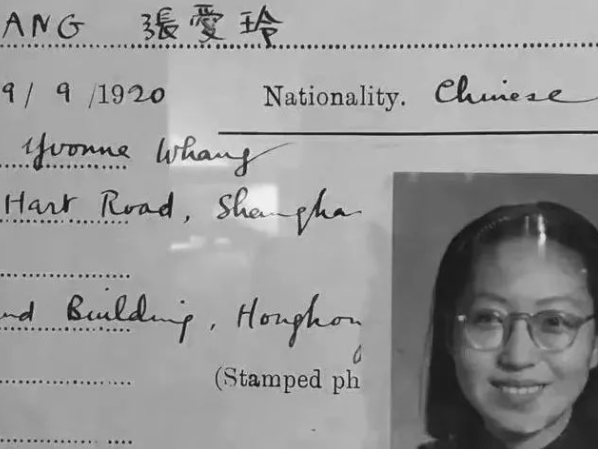 ANG 張愛玲
9 / 9 /1920 Nationality. Chinese
Yvonne Whang
Hart Road, Shangha
nd Building, Hongkong
(Stamped ph